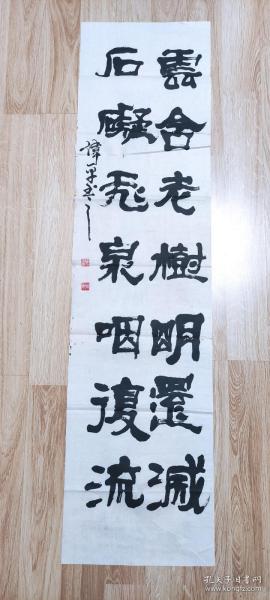 雲含老樹明還滅
石礙飛泉咽復流
偉平書
孔夫子旧书网